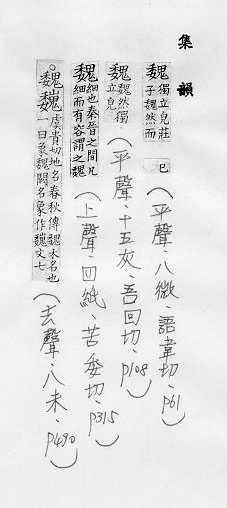 集韻
魏 獨立皃莊子魏然而 已（平聲、八微、語韋切、P61）
魏 魏然獨立皃（平聲、十五灰、吾回切、P108）
魏 細也秦晉之間凡細而有容謂之魏（上聲、四紙、苦委切、P315）
○魏巍 虞貴切地名春秋傳魏大名也一曰象魏闕名象作魏文七（去聲、八未、P490）